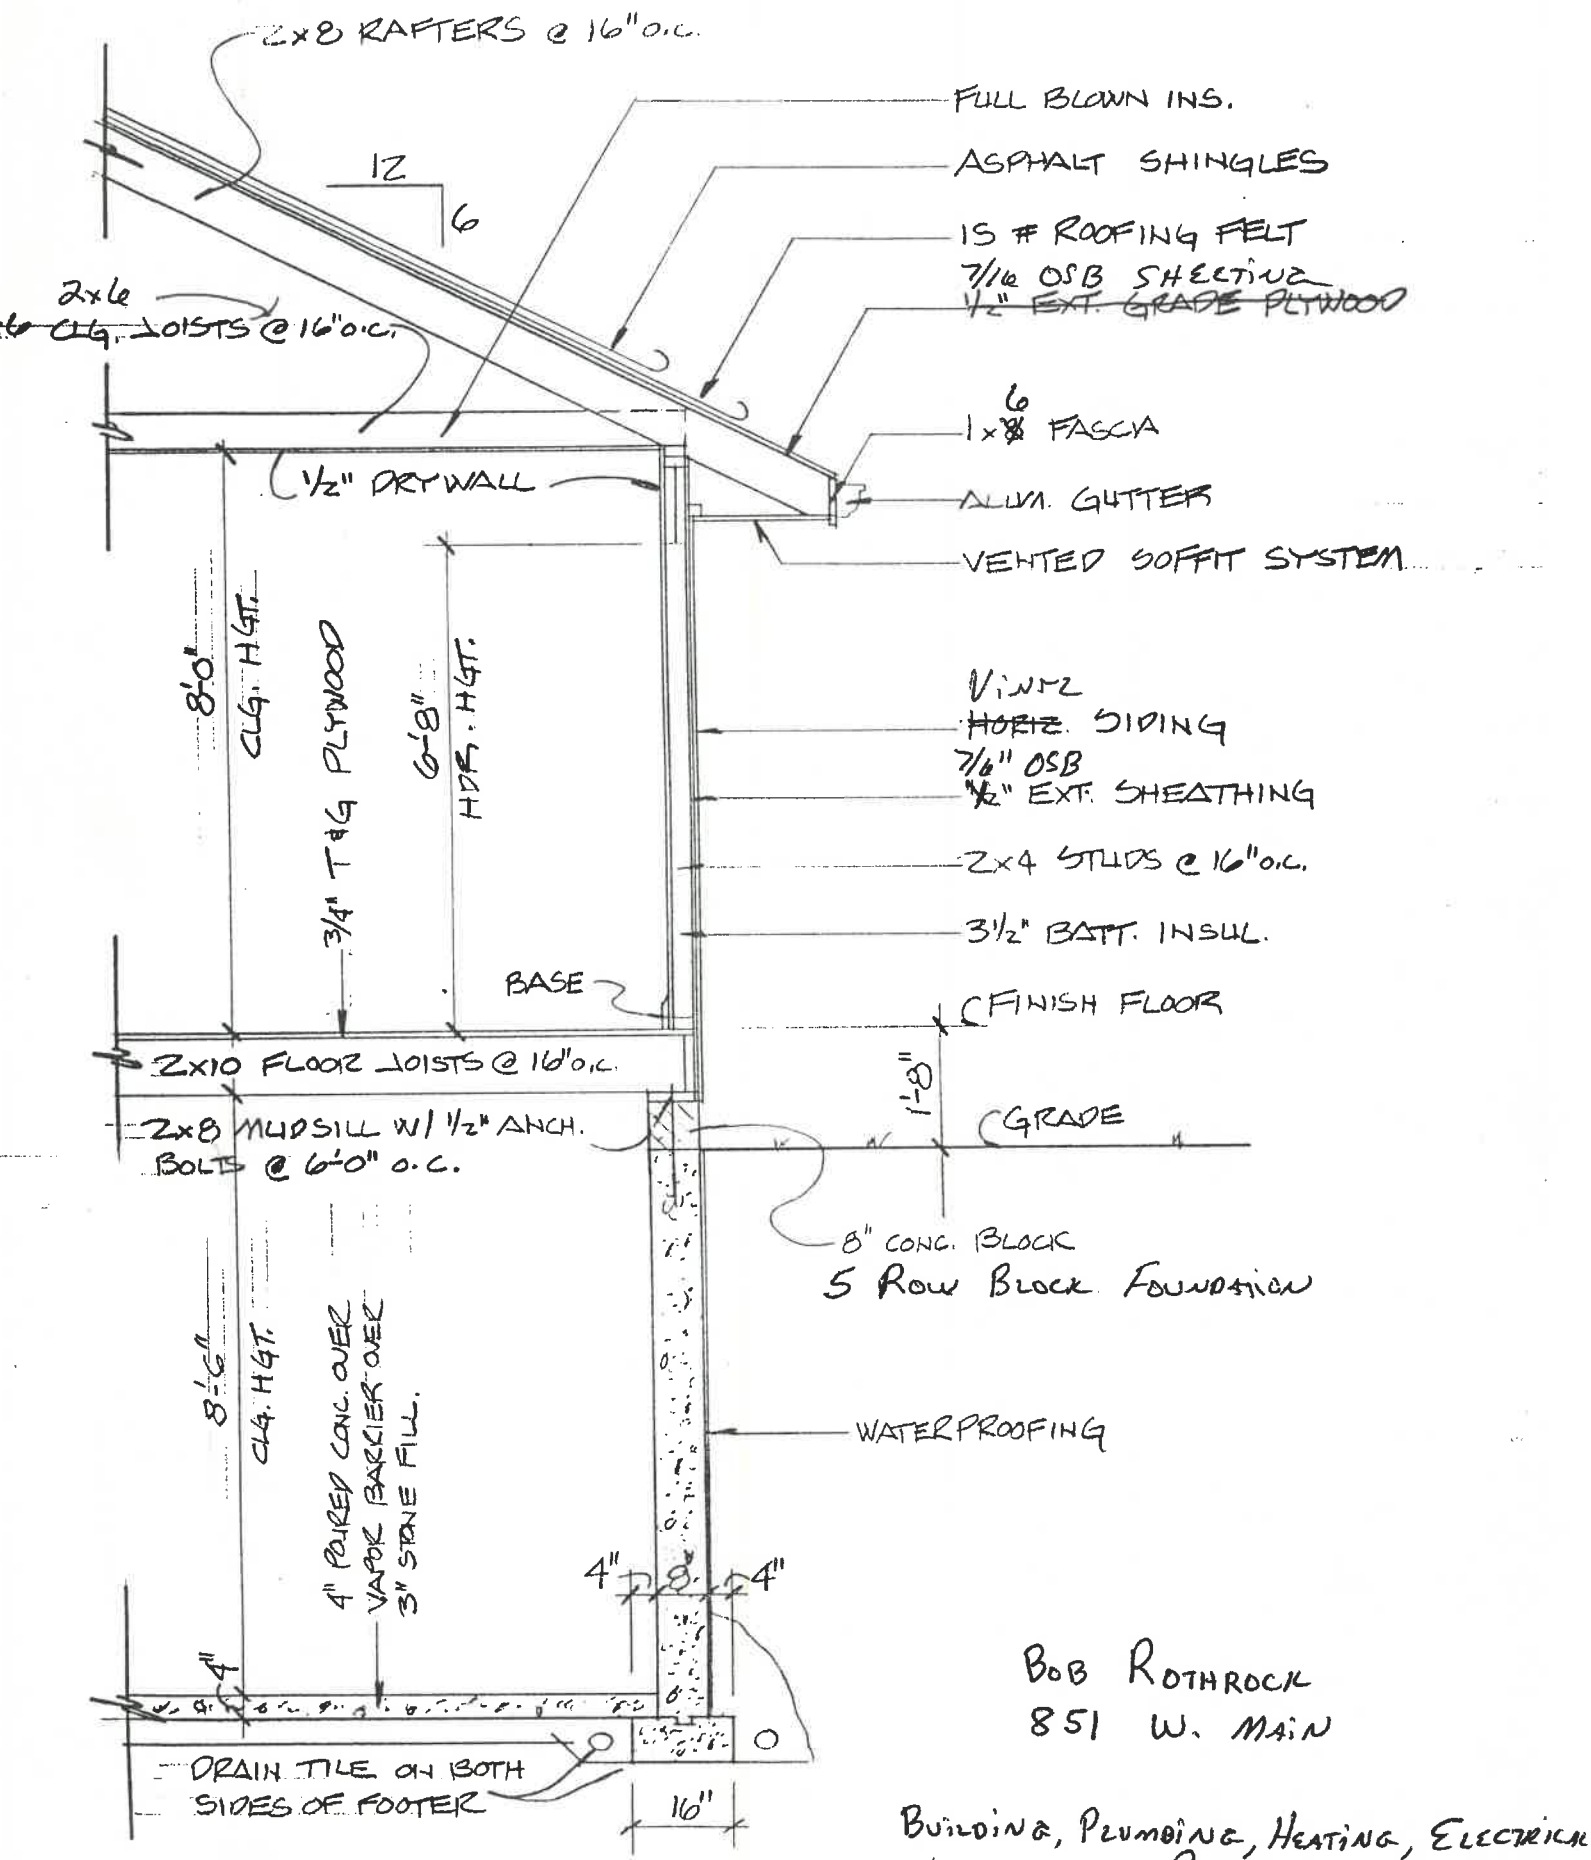 2x8 RAFTERS @ 16" o.c.
FULL BLOWN INS.
ASPHALT SHINGLES
12
6
15 # ROOFING FELT
7/16 OSB SHEETING
1/2" EXT. GRADE PLYWOOD
2x6
6 CLG. JOISTS @ 16" o.c.
6
1x8 FASCIA
1/2" DRYWALL
ALUM. GUTTER
VENTED SOFFIT SYSTEM
8'-0"
CLG. HGT.
3/4" T&G PLYWOOD
6'-8"
HDR. HGT.
VINYL
HORIZ. SIDING
7/16" OSB
1/2" EXT. SHEATHING
2x4 STUDS @ 16" o.c.
3 1/2" BATT. INSUL.
BASE
FINISH FLOOR
2x10 FLOOR JOISTS @ 16" o.c.
1'-8"
GRADE
2x8 MUDSILL W/ 1/2" ANCH.
BOLTS @ 6'-0" o.c.
8" CONC. BLOCK
5 ROW BLOCK FOUNDATION
8'-6"
CLG. HGT.
4" POURED CONC. OVER
VAPOR BARRIER OVER
3" STONE FILL.
WATERPROOFING
4" 8" 4"
4"
BOB ROTHROCK
851 W. MAIN
DRAIN TILE ON BOTH
SIDES OF FOOTER
16"
BUILDING, PLUMBING, HEATING, ELECTRICAL